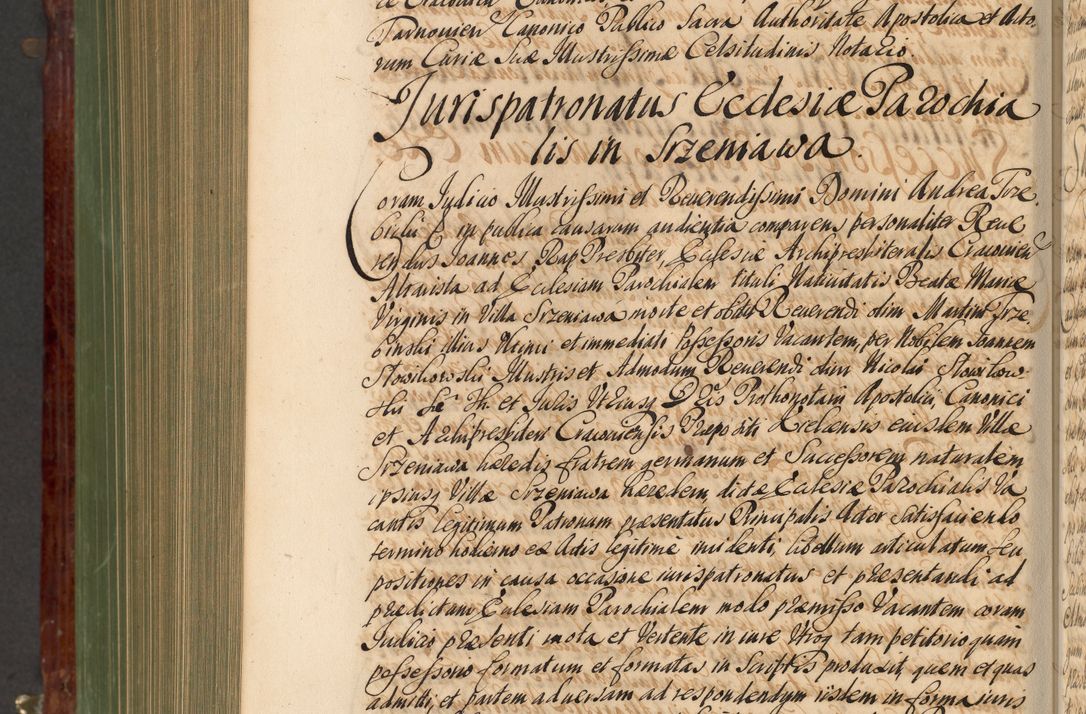 Tarnovien Canonico Publico Sacra Authoritate Apostolica et Acto-
rum Curiæ Suæ Illustrissimæ Celsitudinis Notario.
Jurispatronatus Ecclesiæ Parochia
lis in Srzeniawa.
Coram Judicio Illustrissimi et Reverendissimi Domini Andrea Trze-
bicki E in publica causarum audientia comparens personaliter Reve
rendus Joannes Rap Presbiter Ecclesiæ Archipresbiteralis Cracovien
Altarista ad Ecclesiam Parochialem tituli Nativitatis Beatæ Mariæ
Virginis in Villa Srzeniawa morte et obitu Reverendi olim Martini Trze-
binski illius ultimi et immediati Possessoris Vacantem, per Nobilem Joannem
Słowikowski Illustris et Admodum Reverendi olim Nicolai Słowikow-
ski Sæ Th. et Juris Utriusq Dris Prothonotarii Apostolici, Canonici
et Archipresbiteri Cracoviensis Præpositi Kielcensis eiusdem Villæ
Srzeniawa hæredis fratrem germanum et Successorem naturalem
ipsiusq Villæ Srzeniawa hæredem, dictæ Ecclesiæ Parochialis Va
cantis legitimum Patronum præsentatus Principalis Actor Satisfaciendo
termino hodierno ex Actis legitime incidenti, libellum articulatum seu
positiones in causa occasione iurispatronatus et præsentandi ad
prædictam Ecclesiam Parochialem modo præmisso Vacantem coram
Judicio præsenti mota et Vertente in iure Utroq tam petitorio quam
possessorio formatum et formatas in Scriptis produxit, quem et quas
admitti, et partem adversam ad respondendum iisdem in forma iuris